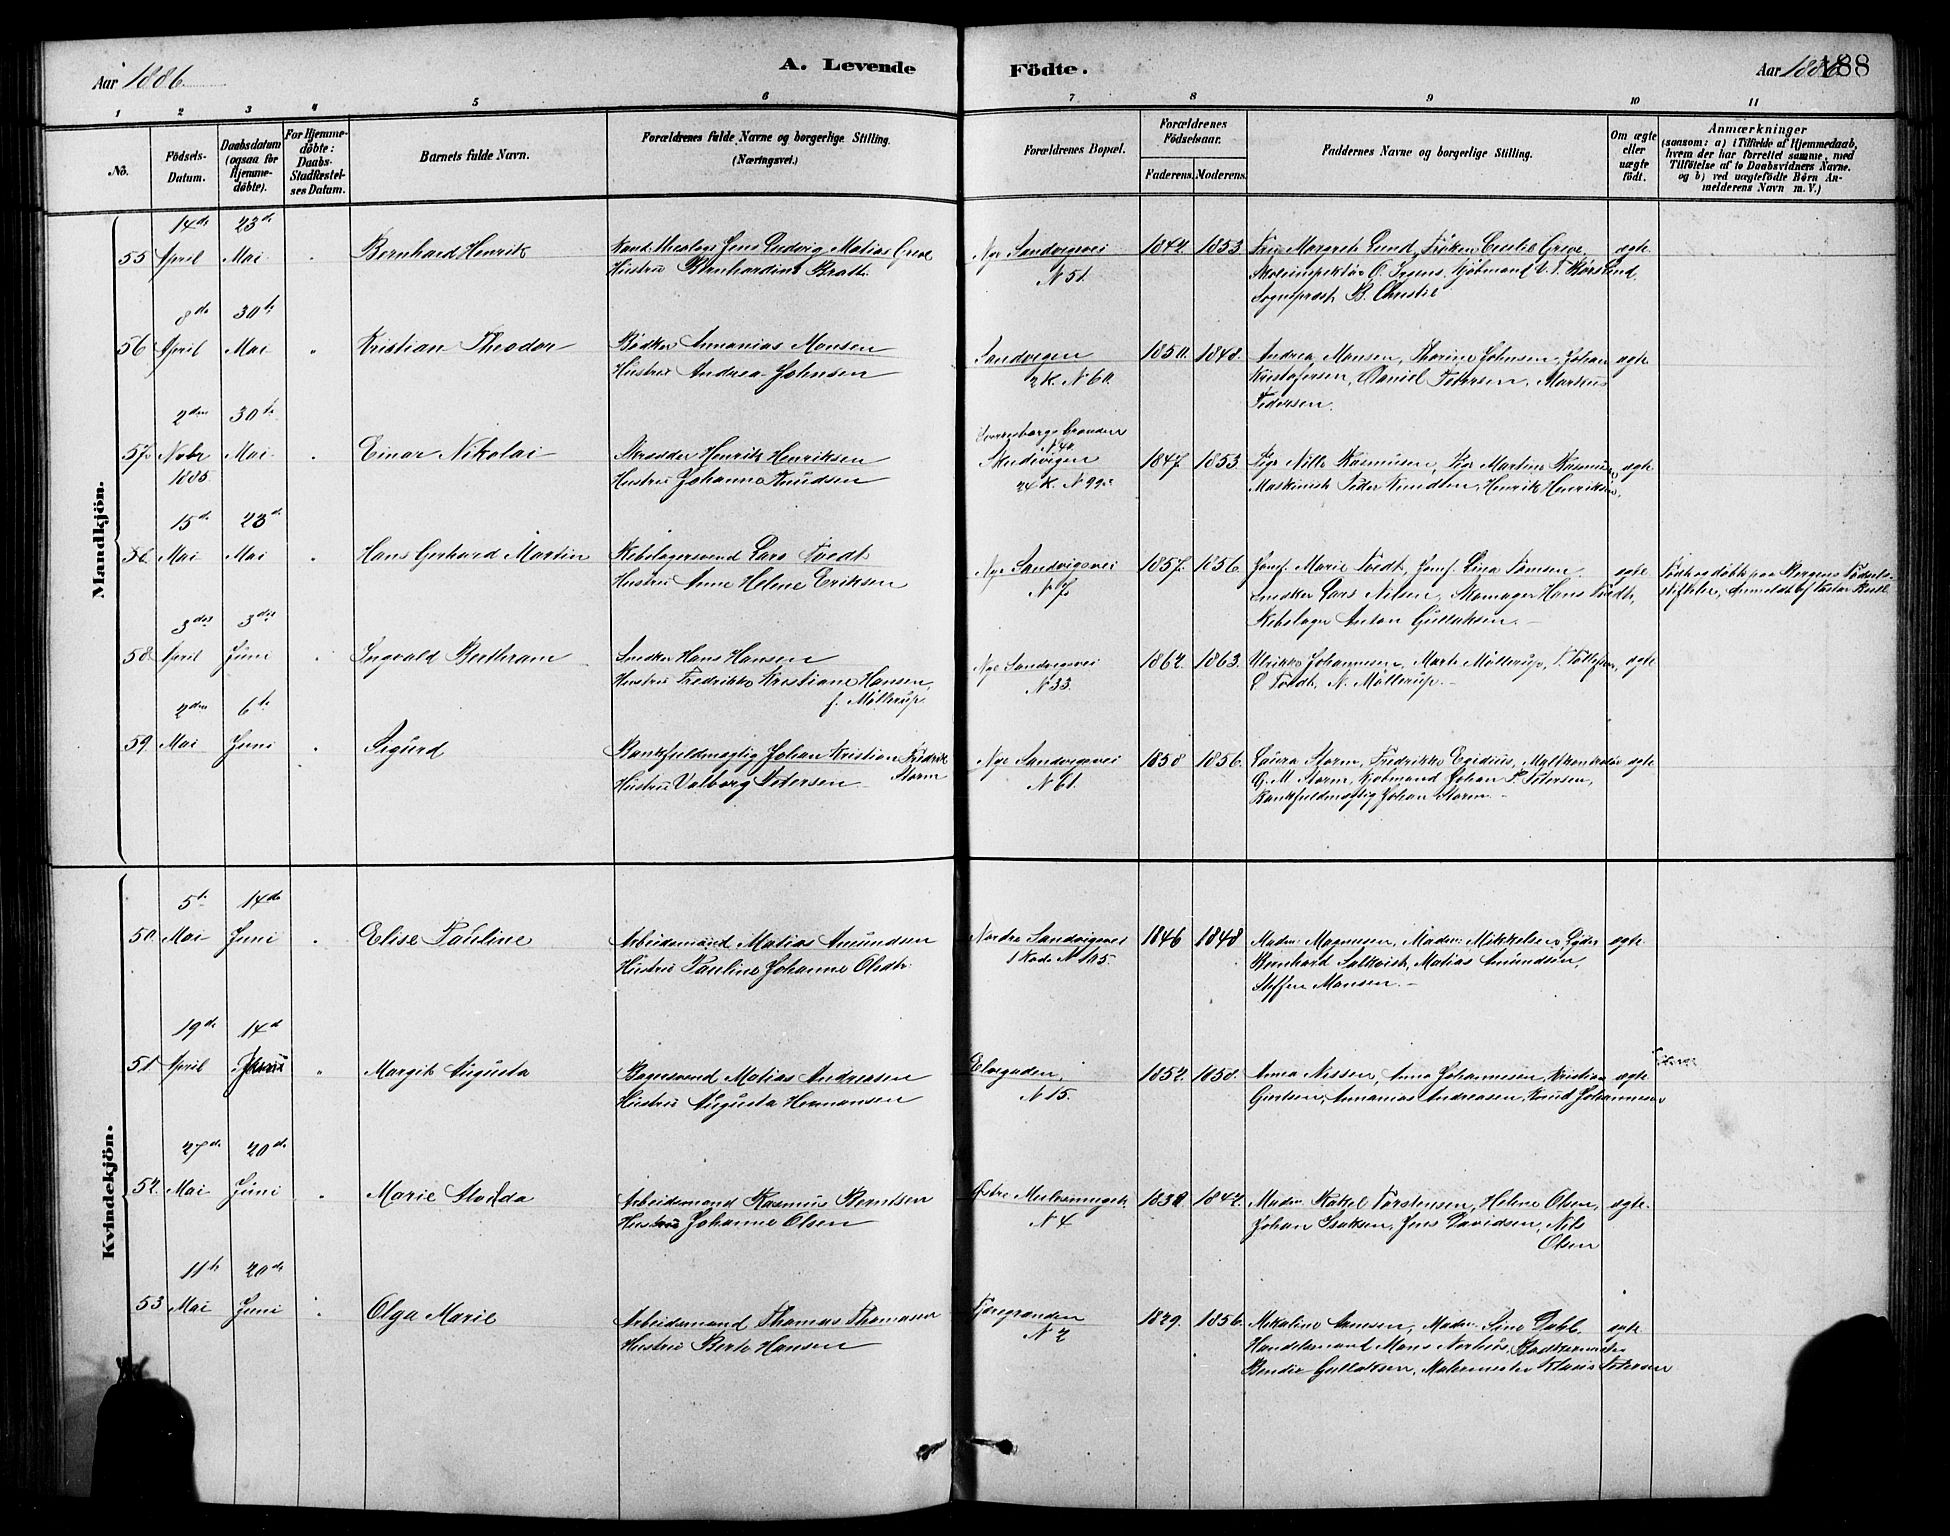 Aar 1886
A. Levende
Födte.
Aar 1886
188
1 2 3 4 5 6 7 8 9 10 11
No.
Födsels-
Datum.
Daabsdatum
(ogsaa for
Hjemme-
döbte).
For Hjemme-
döbte:
Daabs-
Stadfæstel-
ses Datum.
Barnets fulde Navn.
Forældrenes fulde Navne og borgerlige Stilling.
(Næringsvei.)
Forældrenes Bopæl.
Forældrenes
Födselsaar.
Faderens. Moderens.
Faddernes Navne og borgerlige Stilling.
Om ægte
eller
uægte
födt.
Anmærkninger
(saasom: a) i Tilfælde af Hjemmedaab,
hvem der har forrettet samme, med
Tilföielse af to Daabsvidners Navne.
og b) ved uægtefödte Börn An-
melderens Navn m. V.)
Mandkjön.
14de 23de
55 April Mai " Bernhard Henrik
Kand. theologi Jens Ludvig Matias Greve
Hustru Bernhardine Bratt
Nye Sandvigsvei
N 51.
1842. 1853.
Fru Margrete Lund, Fröken Cecilie Greve
Skoleinspektör O. Irgens, Kjöbmand
Sognepræst B. Christie
ægte
8de 30te
56 April Mai " Kristian Theodor
Bödker Annanias Monsen
Hustru Andrea Johnsen
Sandvigen
2 R. N 60.
1850. 1848.
Andrea Monsen, Thorine Johnsen, Johan
Kristofersen, Daniel Petersen, Markus
Pedersen.
ægte
2den 30te
57 Nobr Mai " Einar Nikolai
1885
Skrædder Henrik Henriksen
Hustru Johanne Knudsen
Sverresborgs
N 40
Skudevigen
24 R. N 99
1847. 1853.
Pige Nille Rasmusen, Pige Martine Rasmusen
Maskinist Peder Knudsen, Henrik Henriksen,
ægte
15de 23de
Mai Mai " Hans Gerhard Martin
Rebslagersvend Lars Tvedt
Hustru Anne Helene Eriksen
Nye Sandvigsvei
N 7
1857. 1856.
Jomf. Marie Tvedt, Jomf. Lina Hansen
Snedker Lars Nilsen, Skomager Hans Tvedt,
Rebslager Anton Gullaksen.
ægte
Födt og döbt paa Bergens Födsels-
stiftelse, Anmeldt af Pastor
3die 3die
58 April Juni " Ingvald Bertheram
Snedker Hans Hansen
Hustru Fredrikke Kristiane Hansen,
f. Möllerup
Nye Sandvigsvei
N 33.
1862. 1863.
Ulrikke Johannesen, Marte Möllerup, T. Tollefsen,
L. Tvedt, N. Möllerup.
ægte
2den 6te
59 Mai Juni " Sigurd
Bankfuldmægtig Johan Kristian Fredrik
Storm
Hustru Valborg Petersen
Nye Sandvigsvei
N 61.
1858 1856.
Laura Storm, Fredrikke Egidius, Maltkontrolör
G. M Storm, Kjöbmand Johan P. Petersen,
Bankfuldmægtig Johan Storm.
ægte
Kvindekjön.
5te 14de
50 Mai Juni " Elise Pauline
Arbeidsmand Matias Amundsen
Hustru Pauline Johanne Olsdtr
Nordre Sandvigsvei
1 Rode N 105.
1846 1848
Madm: Magnussen, Madm: Mikkelsen,
Bernhard Salkvist, Matias Amundsen,
Steffen Monsen.
ægte
19de 14d
51 April Juni " Margit Augusta
Bagersvend Matias Andreasen
Hustru Augusta Hermansen
Elvegaden,
N 15.
1852. 1858.
Anna Nissen, Anna Johannesen, Kristian
Gertsen, Annanias Andreasen, Knud Johannesen
ægte
27de 20de
52. Mai Juni " Marie Alvilda
Arbeidsmand Rasmus Berntsen
Hustru Johanne Olsen
Östre Muralmenning
N 4
1838 1842.
Madm: Rakel Torstensen, Helene Olsen,
Johan Isaksen, Jens Davidsen, Nils
Olsen
ægte.
11te 20de
53 Mai Juni " Olga Marie
Arbeidsmand Thomas Thomasen
Hustru Berte Hansen
Fjæregranden
N 2
1829. 1856.
Mikaline Aamsen, Madm: Sine Dahl
Handelsmand Mons Nerhus, Bödkermester
Bendix Gullaksen, Malermester Klaus Petersen
ægte